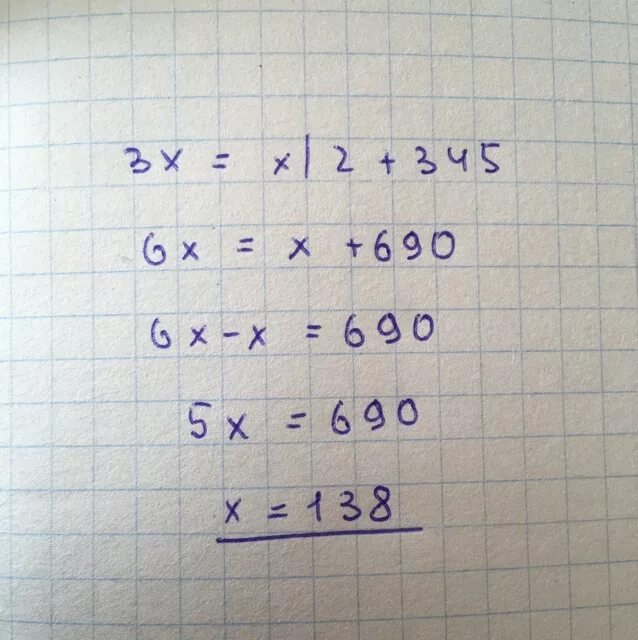 3x = x/2 + 345
6x = x + 690
6x - x = 690
5x = 690
x = 138